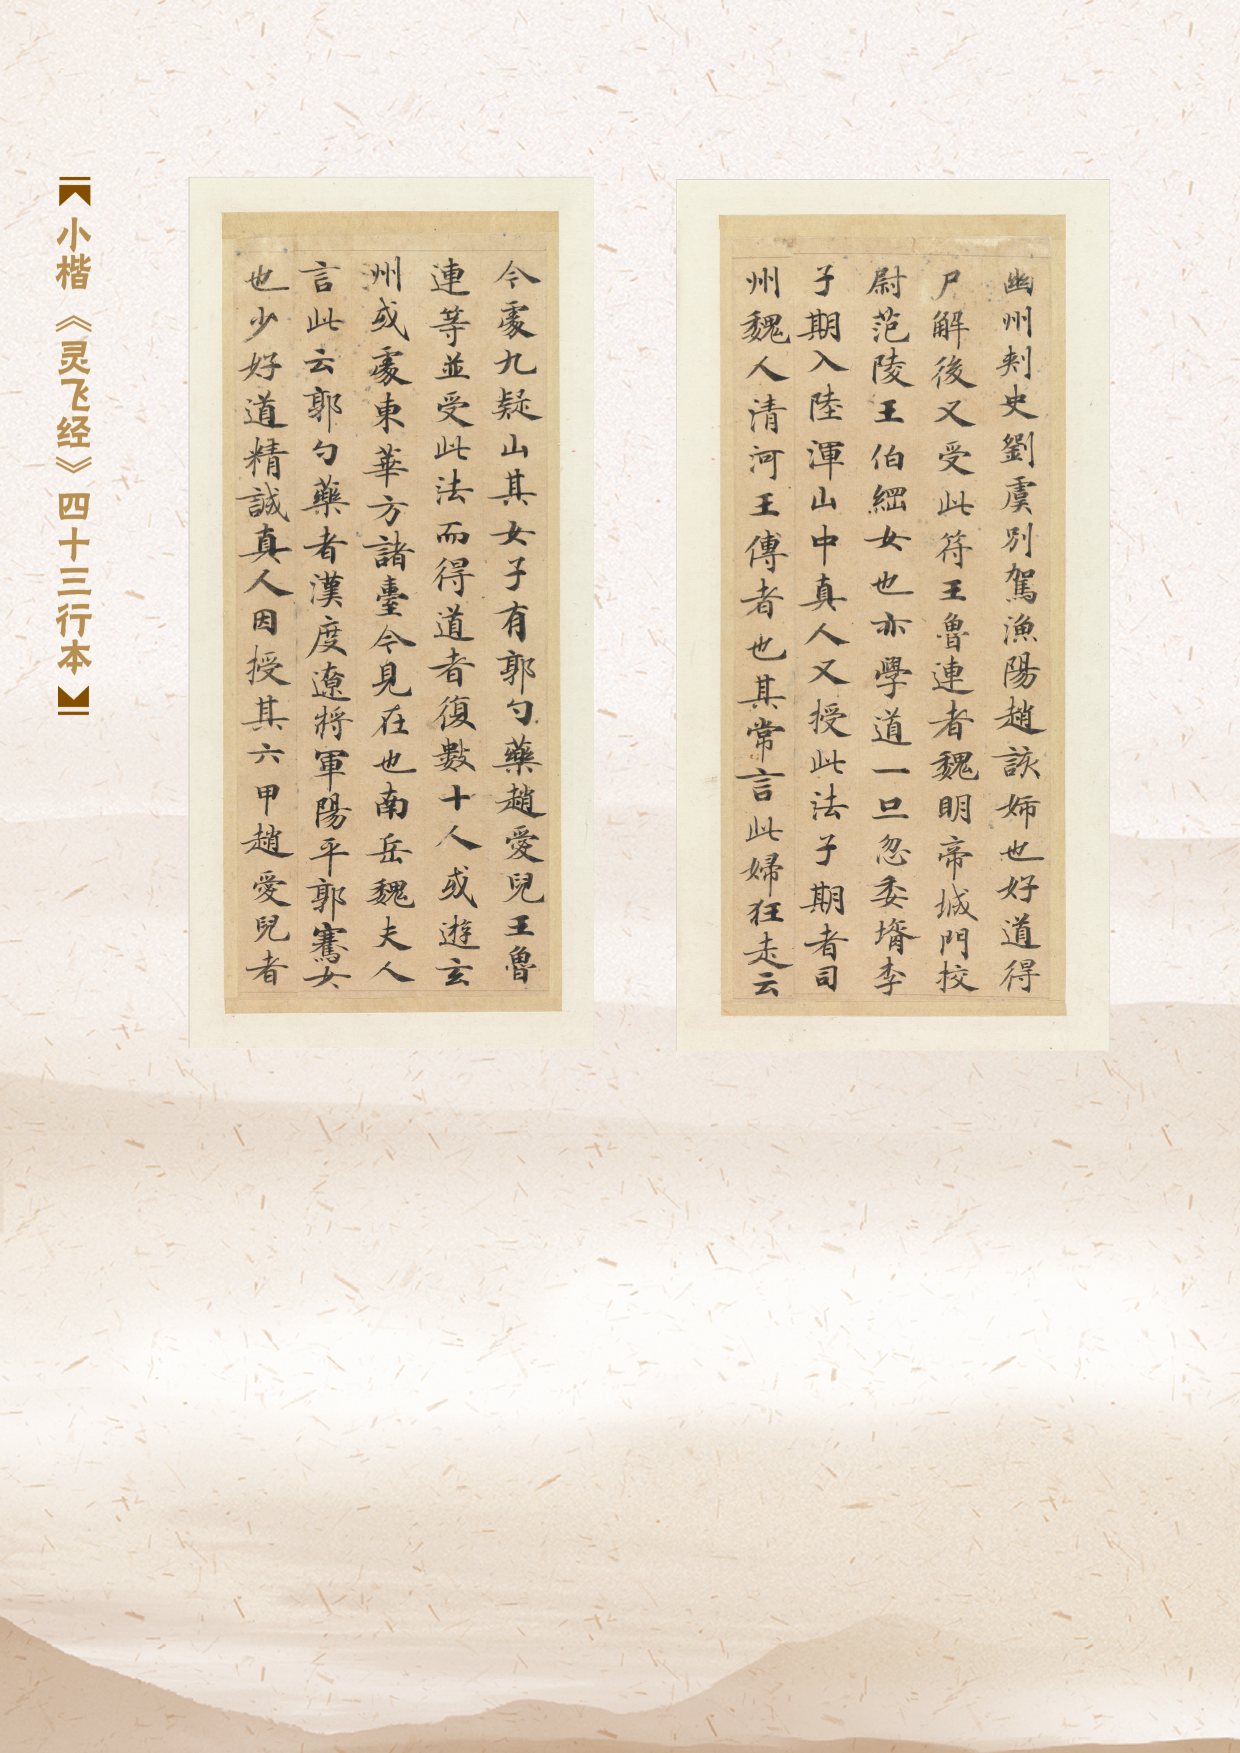 小楷《灵飞经》四十三行本
今處九疑山其女子有郭勺藥趙愛兒王魯
連等並受此法而得道者復數十人或遊玄
洲或處東華方諸臺今見在也南岳魏夫人
言此云郭勺藥者漢度遼將軍陽平郭騫女
也少好道精誠真人因授其六甲趙愛兒者
幽州刾史劉虞別駕漁陽趙該姉也好道得
尸解後又受此符王魯連者魏明帝城門校
尉范陵王伯綱女也亦學道一旦忽委壻李
子期入陸渾山中真人又授此法子期者司
州魏人清河王傅者也其常言此婦狂走云